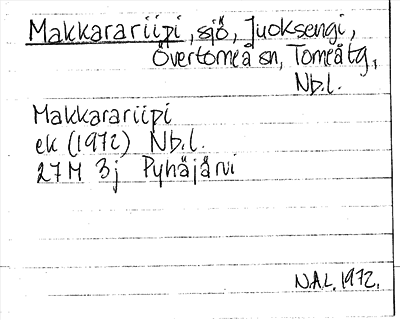 Makkarariipi, sjö, Juoksengi,
Övertorneå sn, Torneåtg,
Nb.l.
Makkarariipi
ek (1972) Nb.l.
27M 3j Pyhäjärvi
N.A.L. 1972.